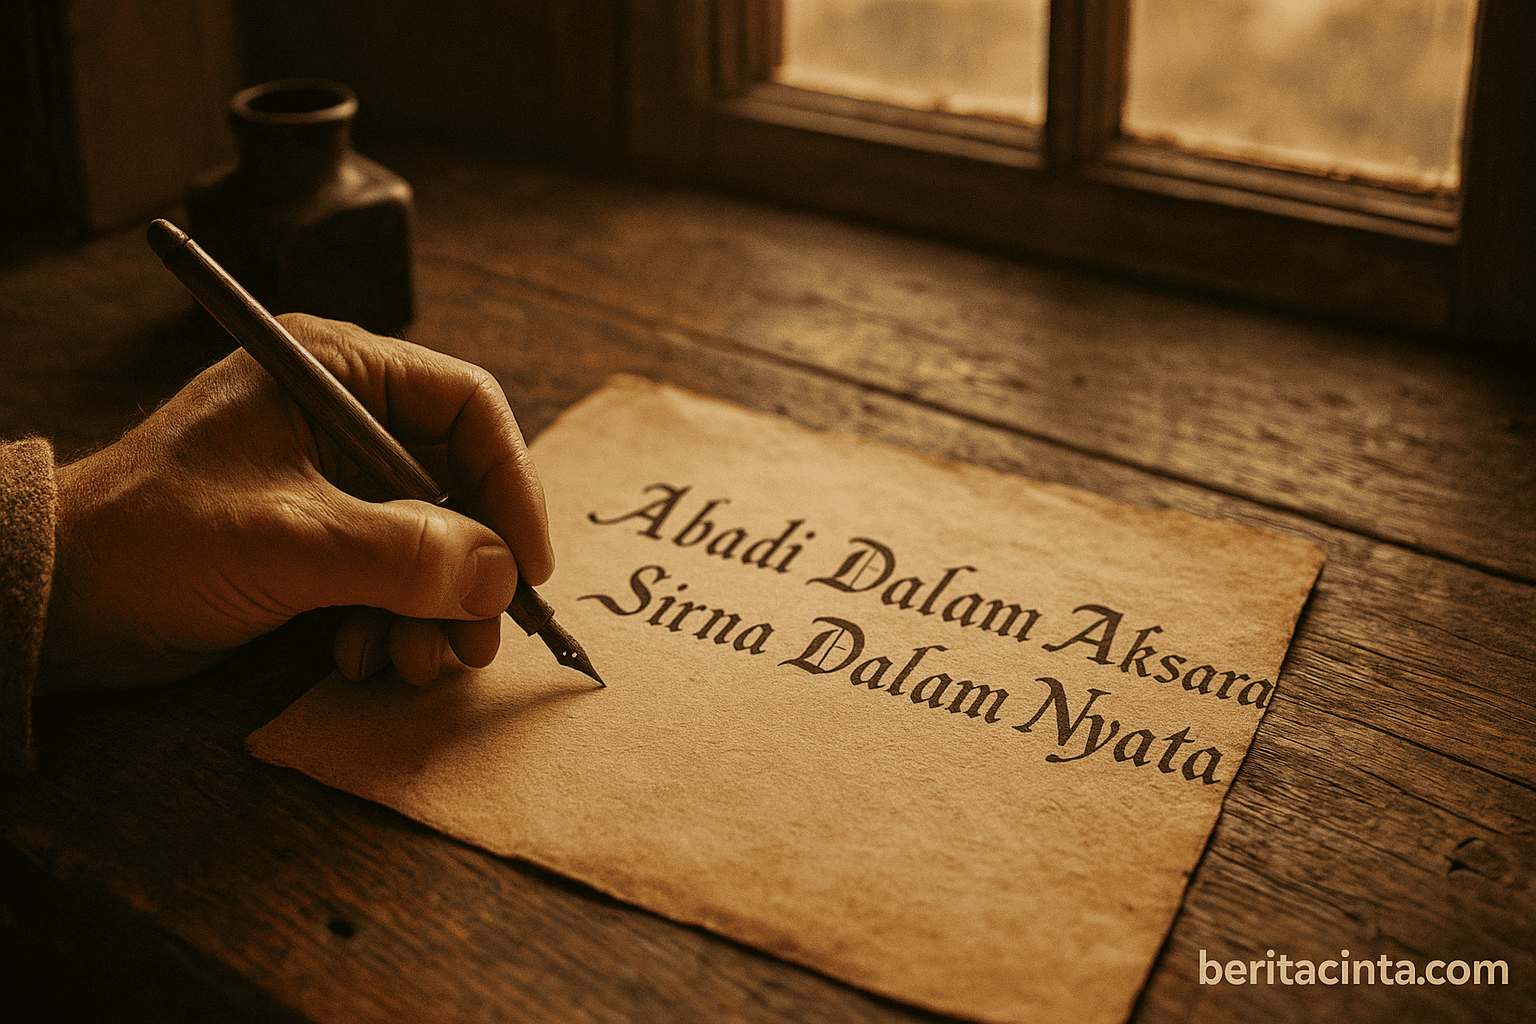 Abadi Dalam Aksara
Sirna Dalam Nyata
beritacinta.com